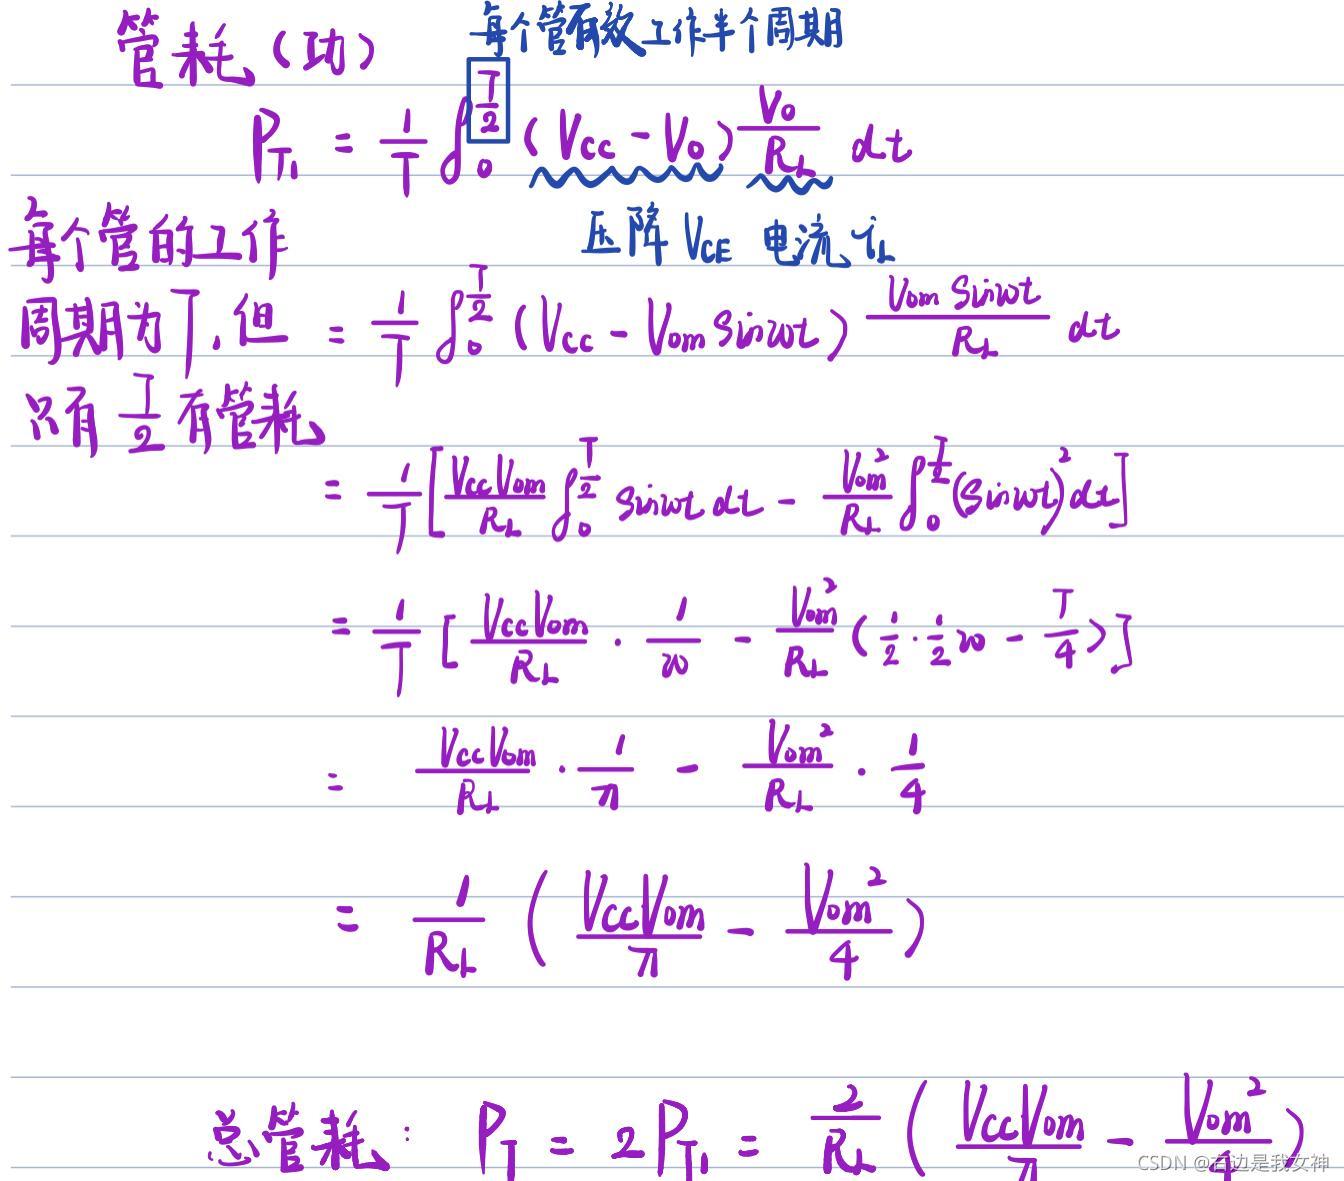 每个管有效工作半个周期
管耗（功）
P_{T_1} = \frac{1}{T} \int_0^{\frac{T}{2}} (V_{CC} - V_o) \frac{V_o}{R_L} dt
压降 V_{CE} 电流 i_L
每个管的工作
周期为T,但
只有 \frac{T}{2} 有管耗
= \frac{1}{T} \int_0^{\frac{T}{2}} (V_{CC} - V_{om} sinwt) \frac{V_{om} sinwt}{R_L} dt
= \frac{1}{T} [\frac{V_{CC}V_{om}}{R_L} \int_0^{\frac{T}{2}} sinwt dt - \frac{V_{om}^2}{R_L} \int_0^{\frac{T}{2}} (sinwt)^2 dt]
= \frac{1}{T} [\frac{V_{CC}V_{om}}{R_L} · \frac{1}{w} - \frac{V_{om}^2}{R_L} (\frac{1}{2} · \frac{1}{2} w - \frac{T}{4})]
= \frac{V_{CC}V_{om}}{R_L} · \frac{1}{π} - \frac{V_{om}^2}{R_L} · \frac{1}{4}
= \frac{1}{R_L} (\frac{V_{CC}V_{om}}{π} - \frac{V_{om}^2}{4})
总管耗: P_T = 2P_{T_1} = \frac{2}{R_L} (\frac{V_{CC}V_{om}}{π} - \frac{V_{om}^2}{4})
CSDN @右边是我女神